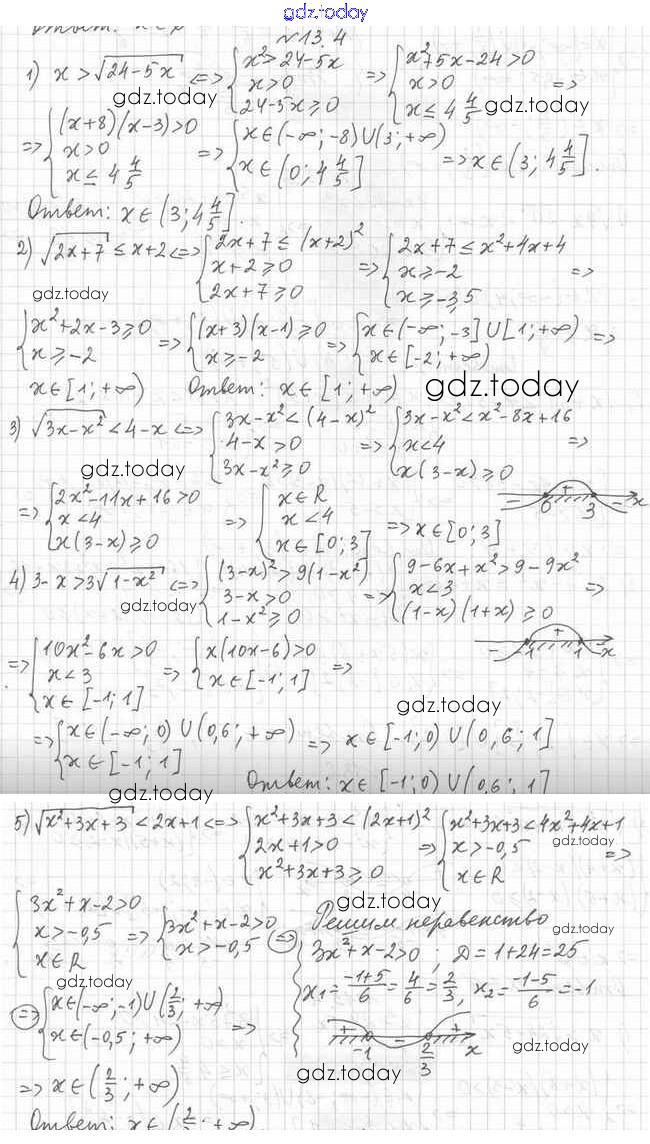 gdz.today
№13.4
1) x > √(24-5x) <=> { x² > 24-5x ; x>0 ; 24-5x ≥ 0 => { x²+5x-24>0 ; x>0 ; x ≤ 4 4/5 =>
gdz.today gdz.today
=> { (x+8)(x-3)>0 ; x>0 ; x ≤ 4 4/5 => { x∈(-∞;-8)∪(3;+∞) ; x∈(0; 4 4/5] => x∈(3; 4 4/5].
Ответ: x∈(3; 4 4/5].
2) √(2x+7) ≤ x+2 <=> { 2x+7 ≤ (x+2)² ; x+2 ≥ 0 ; 2x+7 ≥ 0 => { 2x+7 ≤ x²+4x+4 ; x ≥ -2 ; x ≥ -3,5 =>
gdz.today
{ x²+2x-3 ≥ 0 ; x ≥ -2 => { (x+3)(x-1) ≥ 0 ; x ≥ -2 => { x∈(-∞;-3]∪[1;+∞) ; x∈[-2;+∞) =>
x∈[1;+∞) Ответ: x∈[1;+∞)
gdz.today
3) √(3x-x²) < 4-x <=> { 3x-x² < (4-x)² ; 4-x>0 ; 3x-x² ≥ 0 => { 3x-x² < x²-8x+16 ; x<4 ; x(3-x) ≥ 0 =>
gdz.today
- 0 + 3 - x
=> { 2x²-11x+16>0 ; x<4 ; x(3-x) ≥ 0 => { x∈R ; x<4 ; x∈[0;3] => x∈[0;3]
4) 3-x > 3√(1-x²) <=> { (3-x)² > 9(1-x²) ; 3-x>0 ; 1-x² ≥ 0 => { 9-6x+x² > 9-9x² ; x<3 ; (1-x)(1+x) ≥ 0 =>
gdz.today
- -1 + 1 - x
=> { 10x²-6x>0 ; x<3 ; x∈[-1;1] => { x(10x-6)>0 ; x∈[-1;1] =>
gdz.today
=> { x∈(-∞;0)∪(0,6;+∞) ; x∈[-1;1] => x∈[-1;0)∪(0,6;1]
Ответ: x∈[-1;0)∪(0,6;1]
gdz.today
5) √(x²+3x+3) < 2x+1 <=> { x²+3x+3 < (2x+1)² ; 2x+1>0 ; x²+3x+3 ≥ 0 => { x²+3x+3 < 4x²+4x+1 ; x>-0,5 ; x∈R =>
gdz.today
gdz.today
{ 3x²+x-2>0 ; x>-0,5 ; x∈R => { 3x²+x-2>0 ; x>-0,5 <=>
Решим неравенство
gdz.today
3x²+x-2>0 ; D=1+24=25
gdz.today
x₁ = (-1+5)/6 = 4/6 = 2/3, x₂ = (-1-5)/6 = -1
=> { x∈(-∞;-1)∪(2/3;+∞) ; x∈(-0,5;+∞) =>
+ -1 - 2/3 + x
gdz.today
gdz.today
=> x∈(2/3;+∞)
Ответ: x∈(2/3;+∞)